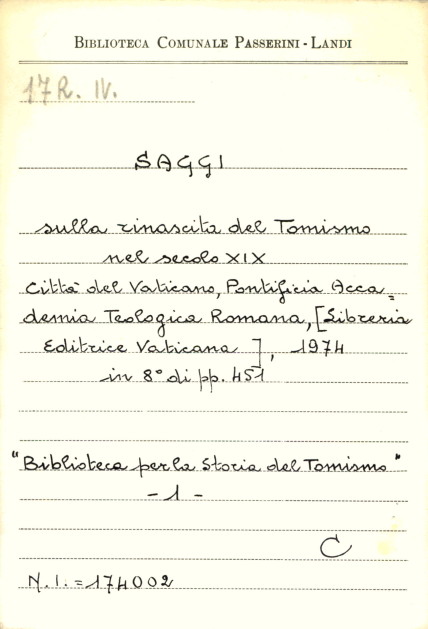 BIBLIOTECA COMUNALE PASSERINI - LANDI
17 R. IV.
SAGGI
sulla rinascita del Tomismo
nel secolo XIX
Città del Vaticano, Pontificia Acca=
demia Teologica Romana, [Libreria
Editrice Vaticana ], 1974
in 8° di pp. 451
"Biblioteca per la Storia del Tomismo"
- 1 -
C
N. I. = 174002